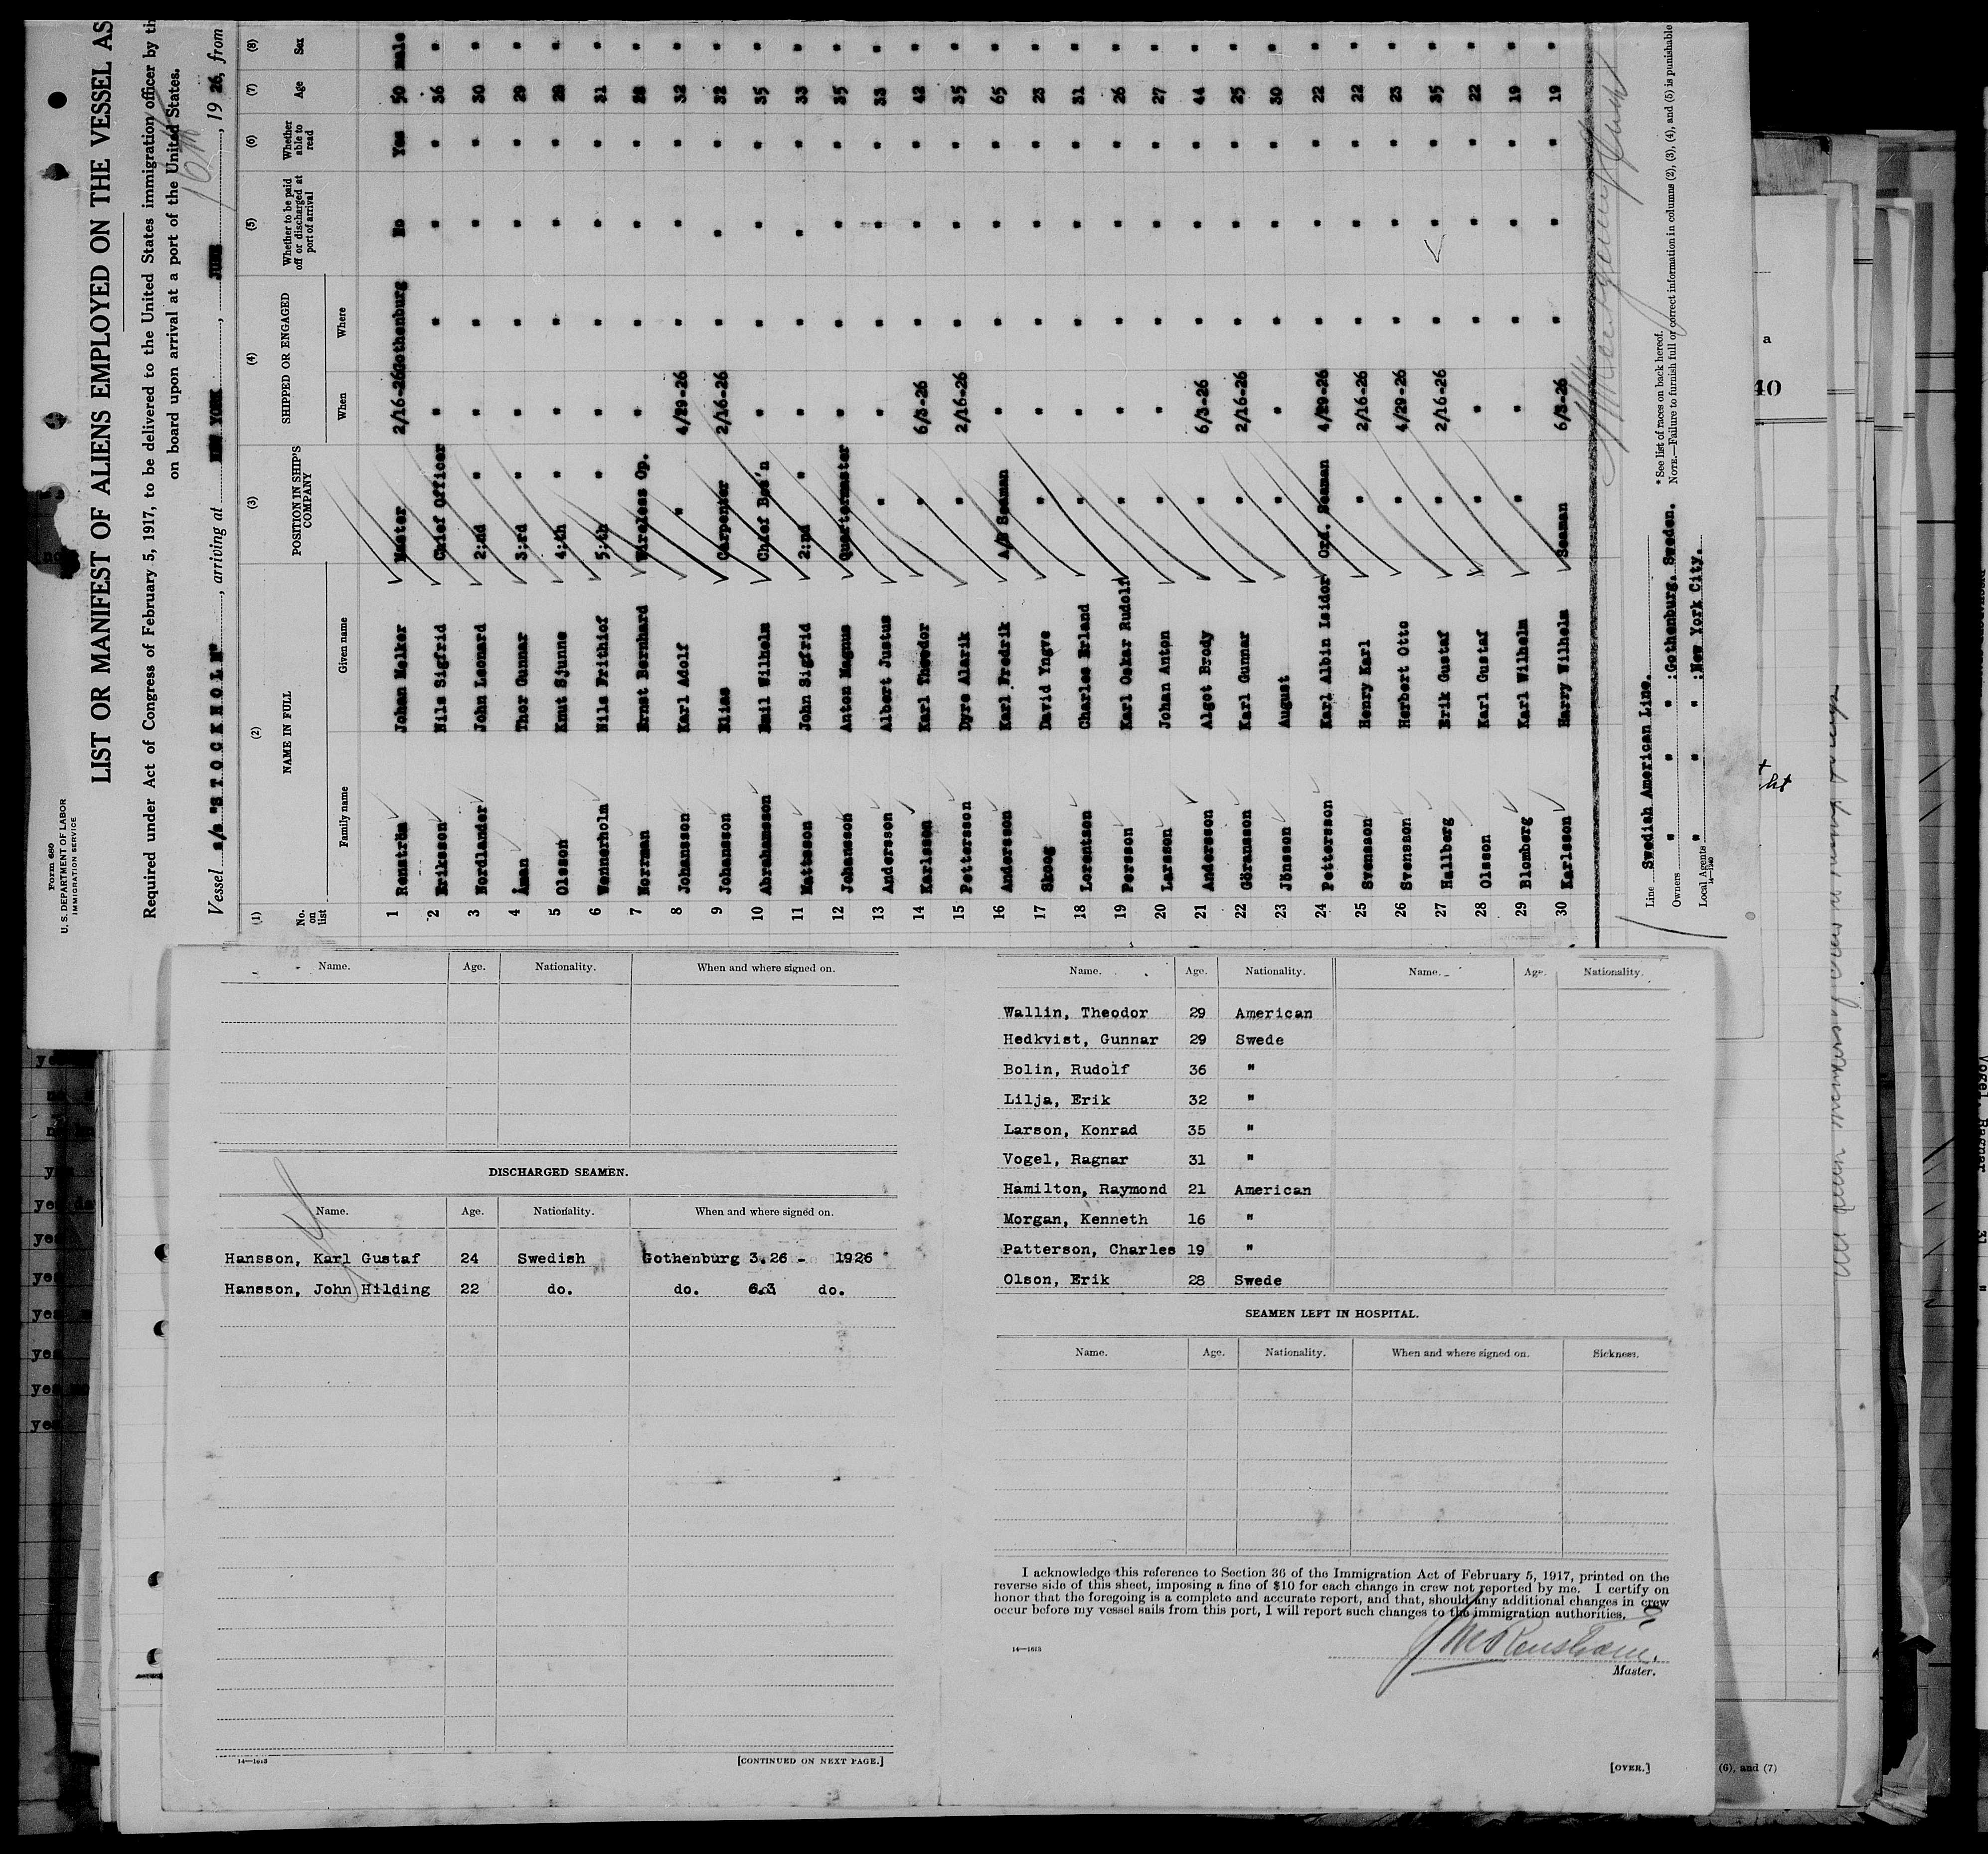 Form 680
U. S. DEPARTMENT OF LABOR
IMMIGRATION SERVICE
LIST OR MANIFEST OF ALIENS EMPLOYED ON THE VESSEL AS
Required under Act of Congress of February 5, 1917, to be delivered to the United States immigration officer by th
on board upon arrival at a port of the United States.
Vessel s/s "S T O C K H O L M", arriving at NEW YORK, JUNE 16th, 1926, from
(1) (2) (3) (4) (5) (6) (7) (8)
No. on list NAME IN FULL POSITION IN SHIP'S COMPANY SHIPPED OR ENGAGED Whether to be paid off or discharged at port of arrival Whether able to read Age Sex
Family name Given name When Where
1 Renström Johan Melker Master 2/16-26 Gothenburg No Yes 50 male
2 Eriksson Nils Sigfrid Chief Officer " " " " 36 "
3 Nordlander John Leonard 2:nd " " " " " 30 "
4 Åman Thor Gunnar 3:rd " " " " " 29 "
5 Olsson Knut Sjunne 4:th " " " " " 28 "
6 Wennerholm Nils Frithiof 5:th " " " " " 31 "
7 Norrman Ernst Bernhard Wireless Op. " " " " 28 "
8 Johansson Karl Adolf " 4/29-26 " " " 32 "
9 Johansson Elias Carpenter 2/16-26 " " " 32 "
10 Abrahamsson Emil Wilhelm Chief Bos'n " " " " 35 "
11 Mattsson John Sigfrid 2:nd " " " " " 33 "
12 Johansson Anton Magnus Quartermaster " " " " 35 "
13 Andersson Albert Justus " " " " " 33 "
14 Karlsson Karl Theodor " 6/3-26 " " " 42 "
15 Pettersson Dyre Alarik " 2/16-26 " " " 35 "
16 Andersson Karl Fredrik A/B Seaman " " " " 65 "
17 Skoog David Yngve " " " " " 23 "
18 Lorentson Charles Erland " " " " " 31 "
19 Persson Karl Oskar Rudolf " " " " " 26 "
20 Larsson Johan Anton " " " " " 27 "
21 Andersson Algot Brody " 6/3-26 " " " 44 "
22 Göransson Karl Gunnar " 2/16-26 " " " 25 "
23 Jönsson August " " " " " 30 "
24 Pettersson Karl Albin Isidor Ord. Seaman 4/29-26 " " " 22 "
25 Svensson Henry Karl " 2/16-26 " " " 22 "
26 Svensson Herbert Otto " 4/29-26 " " " 23 "
27 Hallberg Erik Gustaf " 2/16-26 " " " 35 "
28 Olsson Karl Gustaf " " " " " 22 "
29 Blomberg Karl Wilhelm " " " " " 19 "
30 Karlsson Harry Wilhelm Seaman 6/3-26 " " " 19 "
Line Swedish American Line.
Owners " " " :Gothenburg, Sweden.
Local Agents " " " :New York City.
14—1240
*See list of races on back hereof.
NOTE.—Failure to furnish full or correct information in columns (2), (3), (4), and (5) is punishable
Name. Age. Nationality. When and where signed on.
DISCHARGED SEAMEN.
Name. Age. Nationality. When and where signed on.
Hansson, Karl Gustaf 24 Swedish Gothenburg 3.26 - 1926
Hansson, John Hilding 22 do. do. 6.3 do.
14—1613
[CONTINUED ON NEXT PAGE.]
Name. Age. Nationality. Name. Age. Nationality.
Wallin, Theodor 29 American
Hedkvist, Gunnar 29 Swede
Bolin, Rudolf 36 "
Lilja, Erik 32 "
Larson, Konrad 35 "
Vogel, Ragnar 31 "
Hamilton, Raymond 21 American
Morgan, Kenneth 16 "
Patterson, Charles 19 "
Olson, Erik 28 Swede
SEAMEN LEFT IN HOSPITAL.
Name. Age. Nationality. When and where signed on. Sickness.
I acknowledge this reference to Section 36 of the Immigration Act of February 5, 1917, printed on the
reverse side of this sheet, imposing a fine of $10 for each change in crew not reported by me. I certify on
honor that the foregoing is a complete and accurate report, and that, should any additional changes in crew
occur before my vessel sails from this port, I will report such changes to the immigration authorities.
14—1613
Master.
[OVER.]
(6), and (7)
a
40